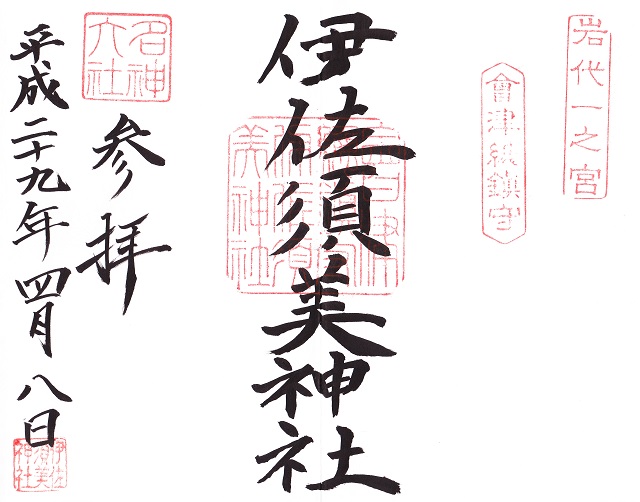 岩代一之宮
會津総鎮守
伊佐須美神社
名神大社
参拝
平成二十九年四月八日
伊佐須美神社